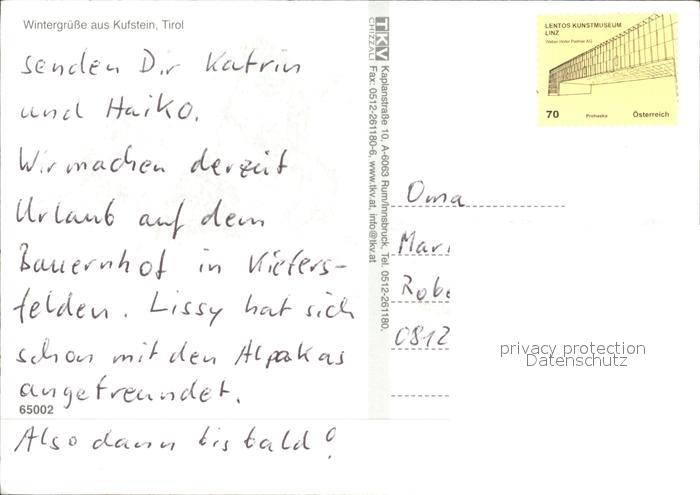 Wintergrüße aus Kufstein, Tirol
senden Dir Katrin
und Haiko.
Wir machen derzeit
Urlaub auf dem
Bauernhof in Kiefers-
felden. Lissy hat sich
schon mit den Alpakas
angefreundet.
65002
Also dann bis bald!
TKV
CHIZZALI
Kaplanstraße 10, A-6063 Rum/Innsbruck, Tel. 0512-261180,
Fax: 0512-261180-6, www.tkv.at, info@tkv.at
LENTOS KUNSTMUSEUM
LINZ
Weber Hofer Partner AG
70 Prohaska Österreich
Oma
Mari
Robe
0812
privacy protection
Datenschutz